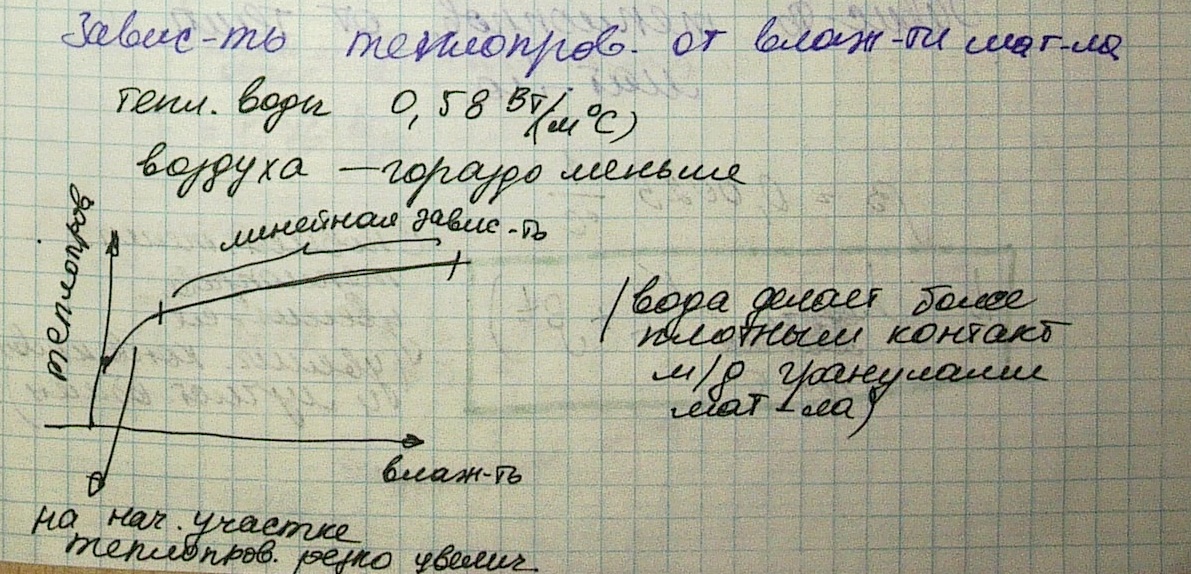 Завис-ть теплопров. от влаж-ти мат-ла
тепл. воды 0,58 Вт/(м°С)
воздуха — гораздо меньше
теплопров
линейная завис-ть
(вода делает более
плотным контакт
м/д гранулами
мат-ла)
влаж-ть
на нач. участке
теплопров. резко увелич.